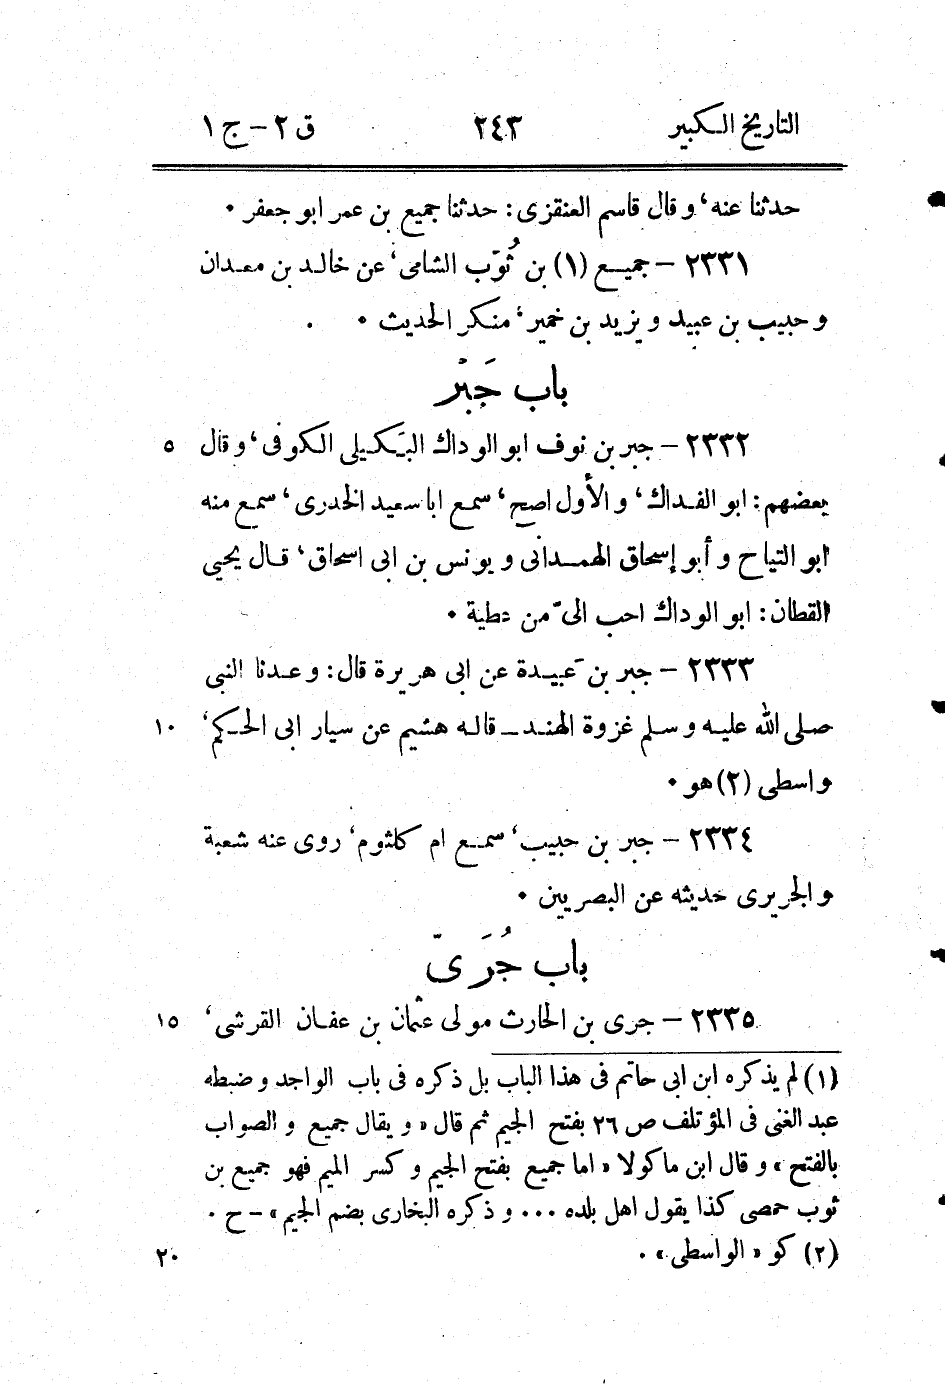 التاريخ الكبير ٢٤٣ ق ٢ - ج ١
حدثنا عنه، و قال قاسم العنقزى: حدثنا جميع بن عمر ابو جعفر ٠
٢٣٣١ - جميع (١) بن ثُوَب الشامى، عن خالد بن معدان
و حبيب بن عبيد و يزيد بن خمير، منكر الحديث ٠
باب جَبْر
٢٣٣٢ - جبر بن نوف ابو الوداك البَكيلى الكوفى، و قال ٥
بعضهم: ابو الفداك، و الأول اصح، سمع ابا سعيد الخدرى، سمع منه
ابو التياح و أبو إسحاق الهمدانى و يونس بن ابى اسحاق، قال يحيى
القطان: ابو الوداك احب الىّ من عطية ٠
٢٣٣٣ - جبر بن عَبيدة عن ابى هريرة قال: وعدنا النبى
صلى الله عليه و سلم غزوة الهند - قاله هشيم عن سيار ابى الحكم، ١٠
واسطى (٢) هو ٠
٢٣٣٤ - جبر بن حبيب، سمع ام كلثوم، روى عنه شعبة
و الجريرى حديثه عن البصريين ٠
باب جُرَىّ
٢٣٣٥ - جرى بن الحارث مولى عثمان بن عفان القرشى، ١٥
(١) لم يذكره ابن ابى حاتم فى هذا الباب بل ذكره فى باب الواحد و ضبطه
عبد الغنى فى المؤتلف ص ٢٦ بفتح الجيم ثم قال « و يقال جميع و الصواب
بالفتح » و قال ابن ماكولا « اما جميع بفتح الجيم و كسر الميم فهو جميع بن
ثوب حمصى كذا يقول اهل بلده ... و ذكره البخارى بضم الجيم » - ح ٠
(٢) كو « الواسطى » ٠ ٢٠